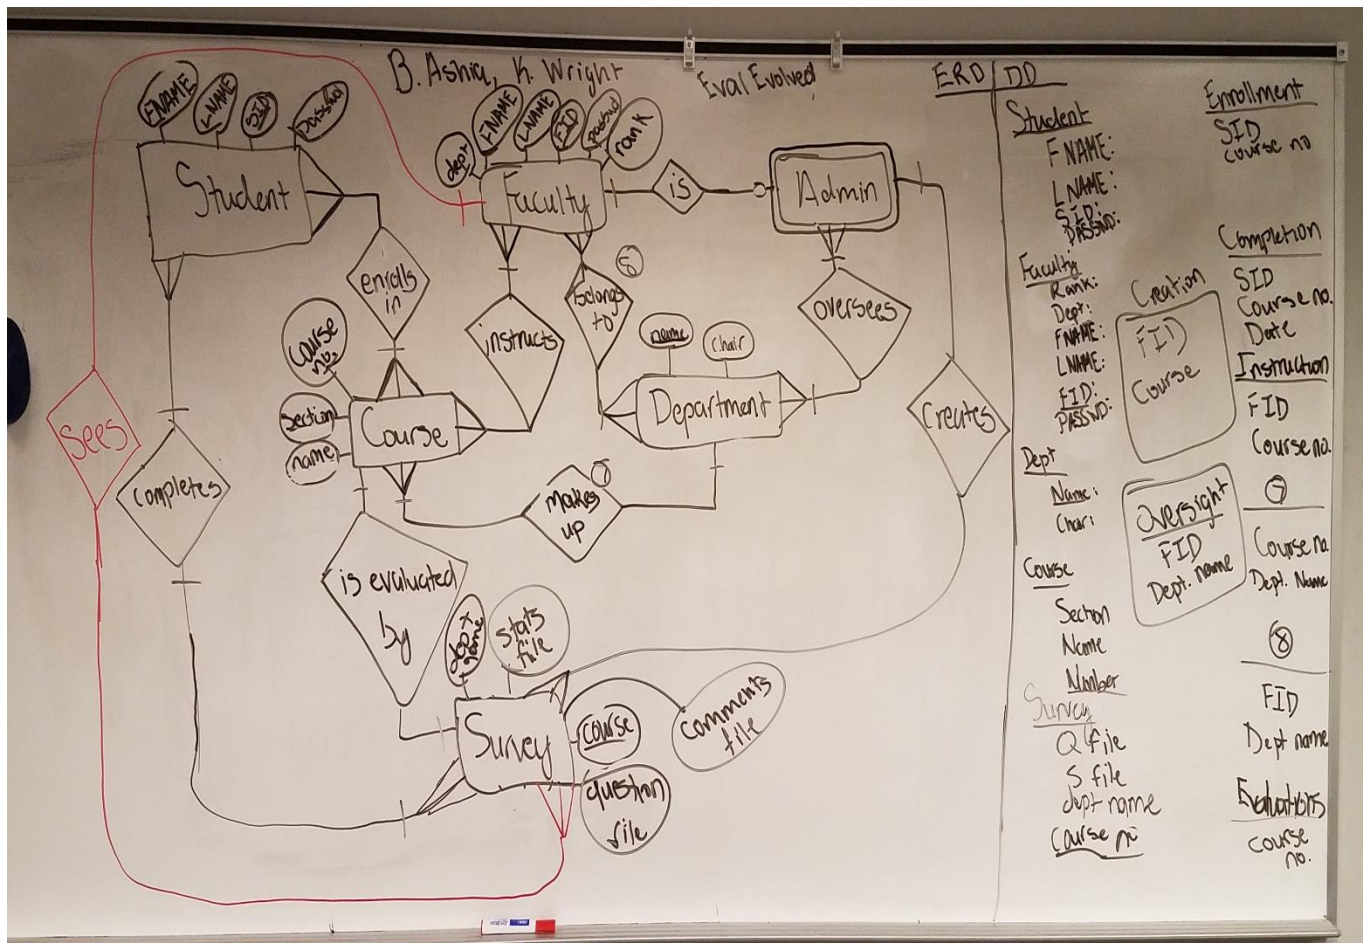 B. Ashia, K. Wright
Eval Evolved
ERD
DD
FNAME
LNAME
SID
passwd
Student
dept
FNAME
LNAME
FID
passwd
rank
Faculty
is
Admin
enrolls
in
instructs
belongs
to
8
oversees
creates
Course
no.
section
name
Course
name
chair
Department
Makes
up
7
sees
completes
is evaluated
by
dept
name
stats
file
Survey
course
comments
file
question
file
Student
FNAME:
LNAME:
SID:
PASSWD:
Faculty
Rank:
Dept:
FNAME:
LNAME:
FID:
PASSWD:
Dept
Name:
Chair:
Course
Section
Name
Number
Survey
Q file
S file
dept name
Course no
Creation
FID
Course
Oversight
FID
Dept. name
Enrollment
SID
course no
Completion
SID
Course no.
Date
Instruction
FID
Course no.
7
Course no.
Dept. Name
8
FID
Dept name
Evaluations
course
no.